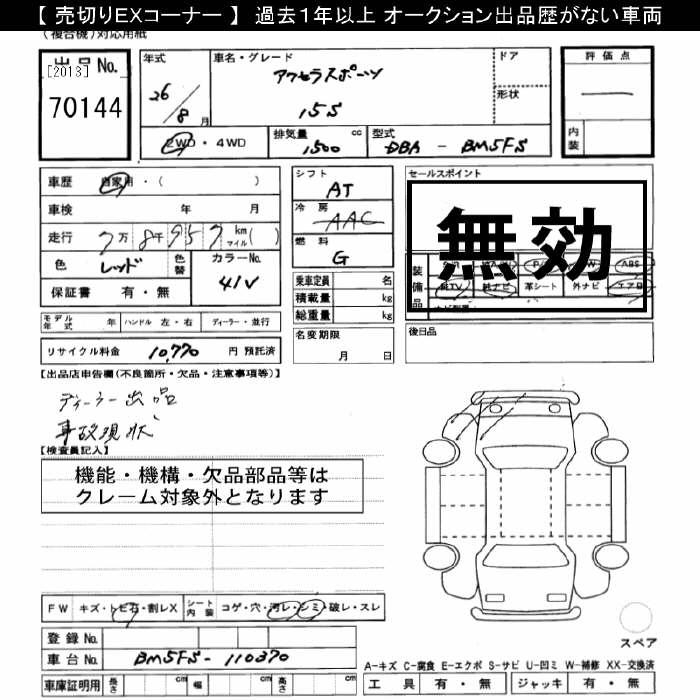 【 売切りEXコーナー 】 過去１年以上 オークション出品歴がない車両
(複合機)対応用紙
出品No.
[2013]
70144
年式
26/8月
車名・グレード
アクセラスポーツ
15S
ドア
形状
評価点
内装
2WD・4WD
排気量 1500 cc
型式 DBA - BM5FS
車歴 自家用・( )
車検 年 月
走行 7万8千957 km マイル( )
色 レッド 色替
カラーNo. 41V
保証書 有・無
シフト AT
冷房 AAC
燃料 G
乗車定員 名
積載量 kg
総重量 kg
セールスポイント
無効
装備品
ABS
純TV 純ナビ 革シート 外ナビ エアB
モデル年式 年 ハンドル 左・右 ディーラー・並行
リサイクル料金 10,770 円 預託済
名変期限 月 日
後日品
【出品店申告欄(不良箇所・欠品・注意事項等)】
ディーラー出品
事故現状
【検査員記入】
機能・機構・欠品部品等は
クレーム対象外となります
FW キズ・トビ石・割レX シート内装 コゲ・穴・汚レ・シミ・破レ・スレ
登録No.
車台No. BM5FS-110370
車庫証明用 長さ cm 幅 cm 高さ cm
スペア
A-キズ C-腐食 E-エクボ S-サビ U-凹ミ W-補修 XX-交換済
工具 有・無 ジャッキ 有・無